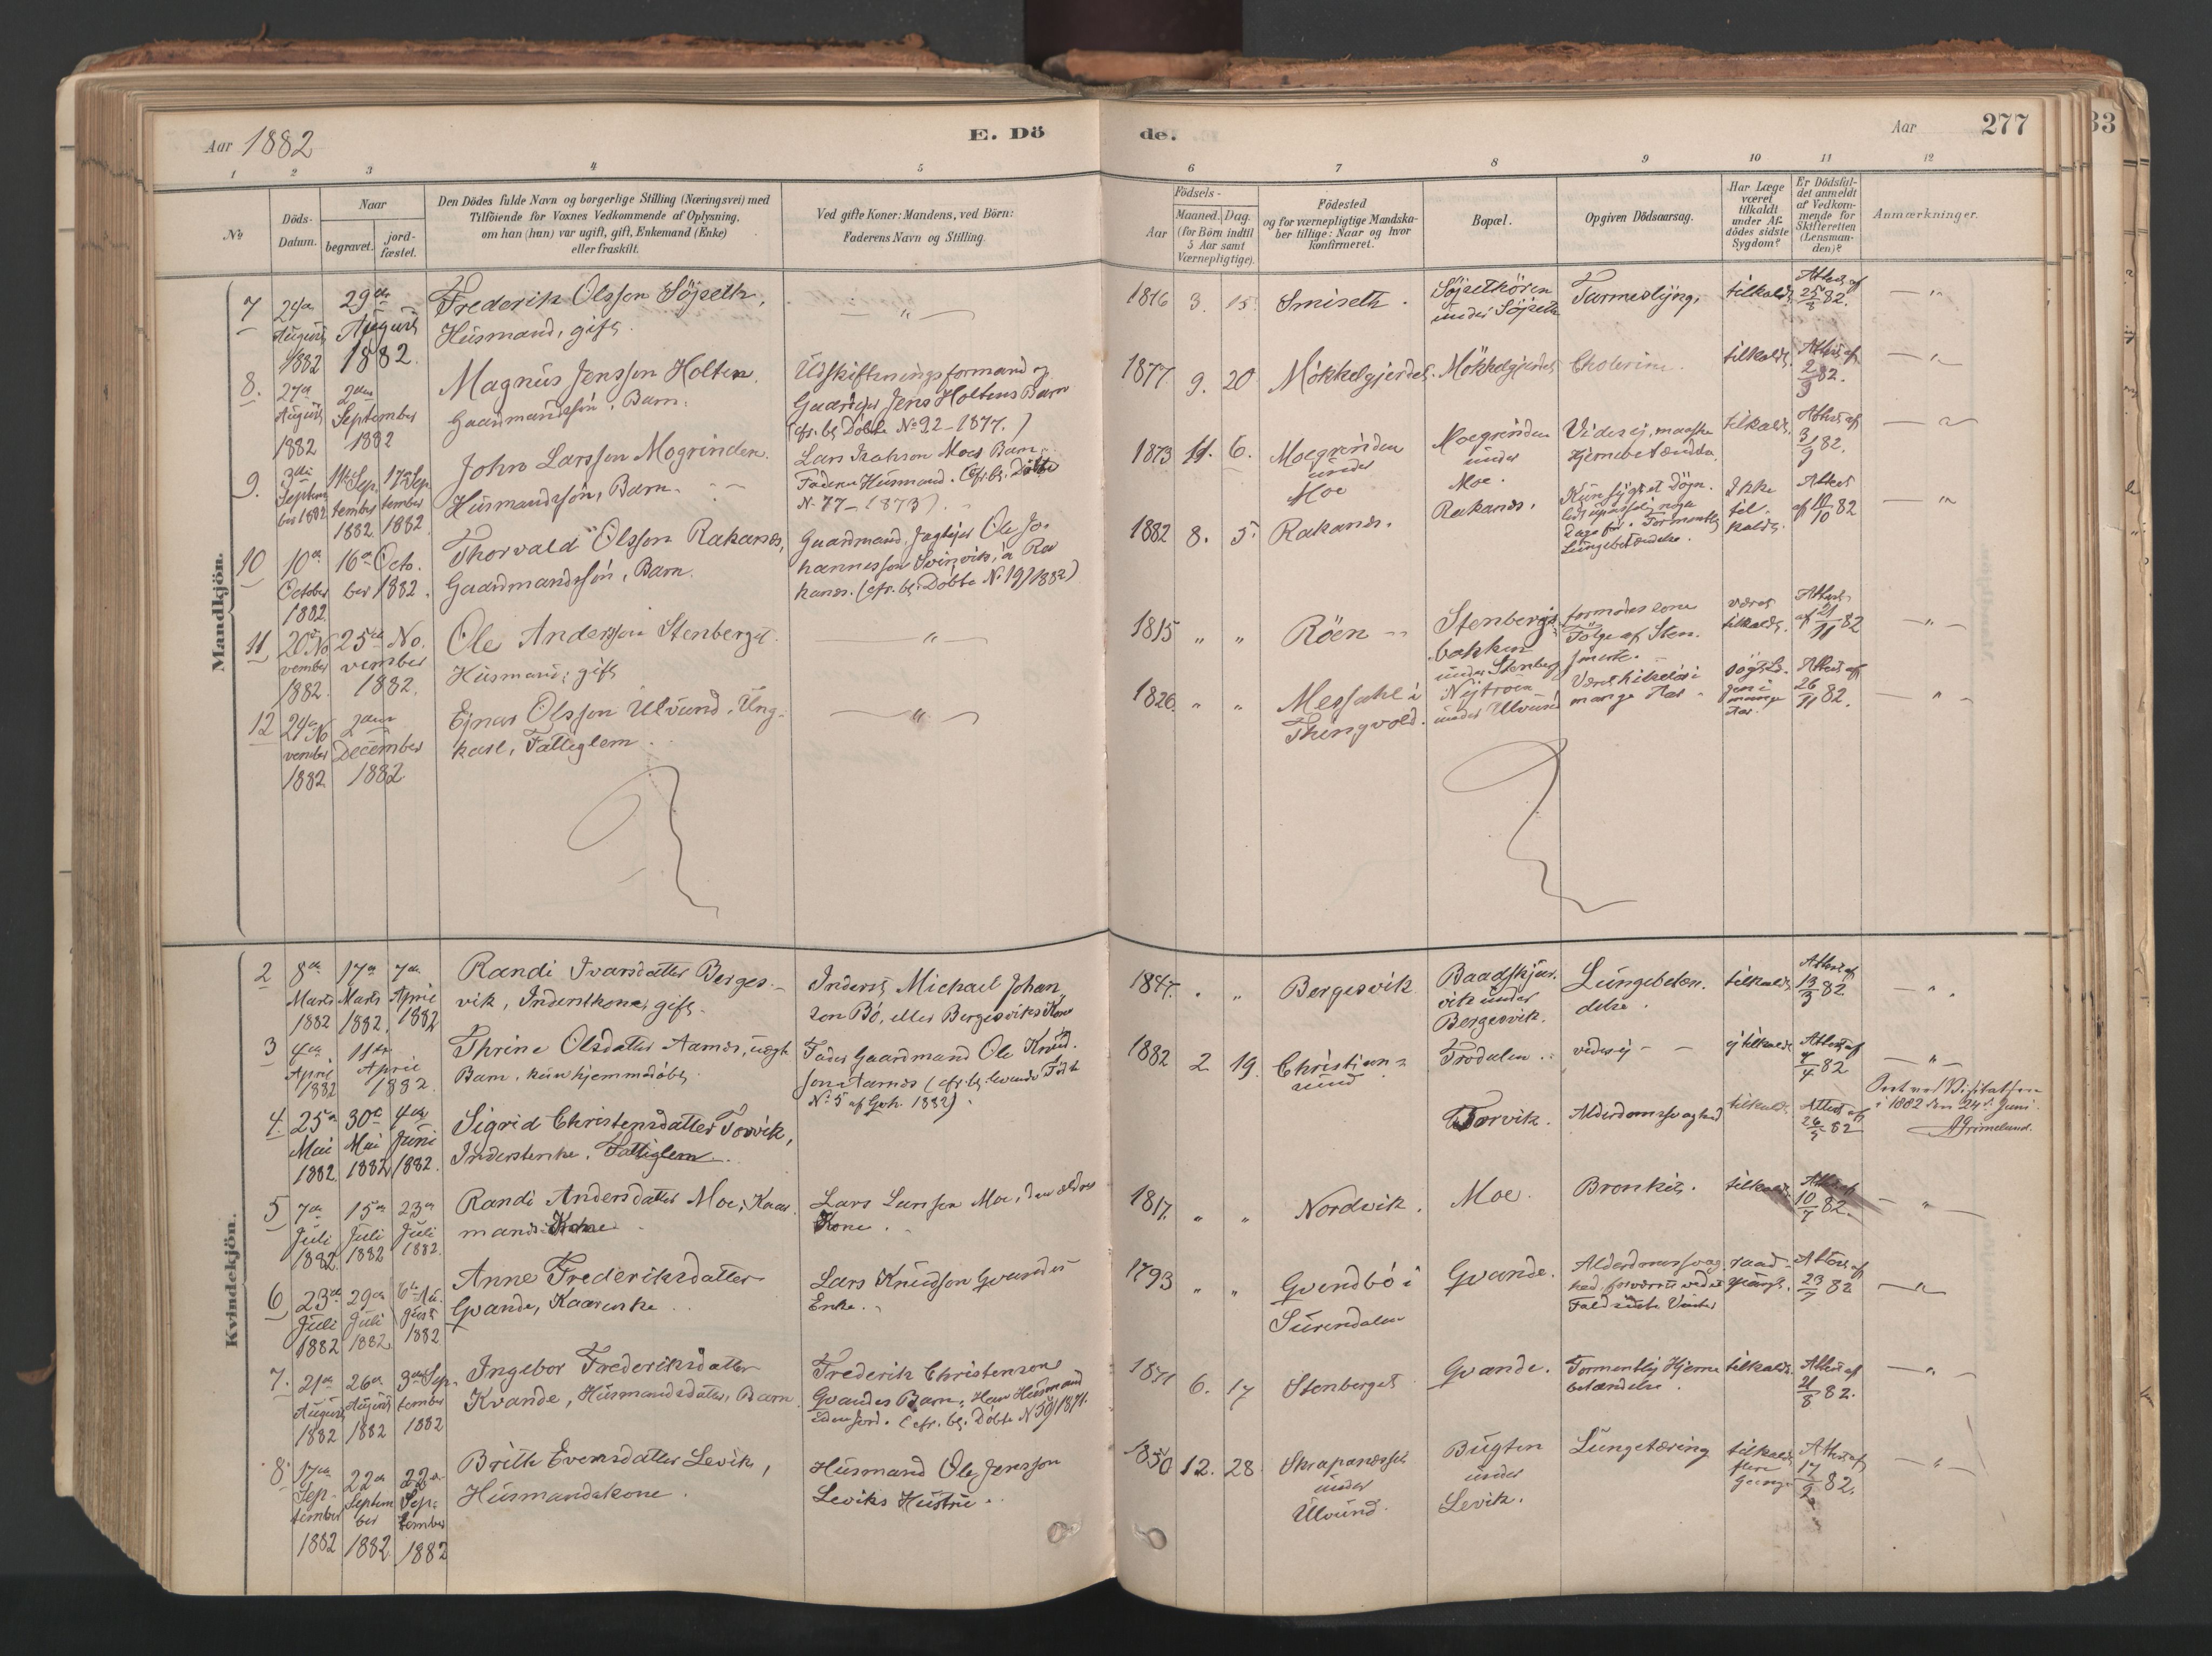 Aar 1882
E. Dö
de.
Aar
277
33
1
2
3
4
5
6
7
8
9
10
11
12
No
Döds-
Datum.
Naar
begravet.
jord-
fæstet.
Den Dödes fulde Navn og borgerlige Stilling (Næringsvei) med
Tilföiende for Voxnes Vedkommende af Oplysning.
om han (hun) var ugift, gift, Enkemand (Enke)
eller fraskilt.
Ved gifte Koner: Mandens, ved Börn:
Faderens Navn og Stilling.
Födsels-
Aar
Maaned.
Dag.
(for Börn indtil
5 Aar samt
Værnepligtige).
Födested
og for værnepligtige Mandska-
ber tillige: Naar og hvor
konfirmeret.
Bopæl.
Opgiven Dödsaarsag.
Har Læge
været
tilkaldt
under Af-
dödes sidste
Sygdom?
Er Dödsfal-
det anmeldt
af Vedkom-
mende for
Skifteretten
(Lensman-
den)?
Anmærkninger.
Mandkjön.
7
August
1882
29de
August
1882.
Frederik Olsson Söjseth,
Husmand, gift.
1816
3.
15
Smiseth.
under Söjseth
Tarmeslyng.
tilkaldt
Attest af
25/8 82.
8.
27de
August
1882
2den
September
1882
Magnus Jensson Holten.
Gaardmandssön. Barn.
Udskiftningsformand og
Gaardejer Jens Holtens Barn
(cfr. bl. Döbte No 22-1877.)
1877
9.
20
Mökkelgjerdet.
Mökkelgjerdet
Cholerine.
tilkaldt.
Attest af
2/9 82.
9.
3die
Septem
ber 1882
11te Sep.
tember
1882.
17de Sep
tember
1882.
John Larsson Mogrinden.
Husmandssön, Barn.
Lars Isakson Moes Barn.
Faderen Husmand. (Cfr. bl. Döbte
No 77-1873).
1873
11.
6.
Moegrinden
under
Moe
Moegrinden
under
Moe.
Vides ej, maaske
Hjernebetændelse.
tilkaldt.
Attest af
3/9 82.
10
10de
October
1882.
16de Octo.
ber 1882.
Thorvald Olsson Rakanes,
Gaardmandssön, Barn.
Gaardmand, Jagtejer Ole Jo.
hannesson Svinvik, à Ra
kanes. (cfr. bl. Döbte No 19/1882)
1882
8.
5.
Rakanes.
Rakanes.
Kun sygt et Dögn.
Lungebetændelse.
Ikke
til.
kaldt.
Attest
af 10/10 82
11
20de No
vember
1882.
25de No.
vember
1882.
Ole Andersson Stenberget.
Husmand, gift
1815
Röen
Stenbergs
bakken
under Stenberg
formodes som
Fölge af Sten.
smerte.
været
tilkaldt.
Attest
af 21/11 82
12
24de No
vember
1882
2den
December
1882
Ejnar Olsson Ulvund, Ung-
karl, Fattiglem.
1826
Messahl i
Thingvold.
Nytröen
under Ulvund
Været hilselös i
mange Aar.
sögt Læ.
gen i
mange
Aar.
Attest af
26/11 82.
Kvindekjön.
2
8de
Marts
1882
17de
Marts
1882.
7de
April
1882
Randi Ivarsdatter Berges-
vik, Inderstkone, gift.
Inderst Michael Johan
son Bö, eller Bergesviks Kone
1847.
Bergesvik
Baadskjær.
vik under
Bergesvik.
Lungebetæn.
delse.
tilkaldt
Attest af
13/3 82.
3
4de
April
1882
11te
April
1882.
Thrine Olsdatter Aarnes, uægte
Barn, kun hjemmedöbt.
Fader Gaardmand Ole Knud.
son Aarnes (cfr. bl. levende Födte
No 5 af Qvk. 1882).
1882
2
19.
Christian-
sund
Trodalen
vides ej
ej tilkaldt
Attest af
4/4 82
4.
25de
Mai
1882.
30de
Mai
1882
4de
Juni
1882.
Sigrid Christensdatter Torvik,
Inderstenke, Fattiglem.
Torvik.
Alderdomssvaghed
tilkaldt.
Attest af
26/5 82
Visitatsen
i 1882 den 24de Juni.
AGrimelund.
5
7de
Juli
1882.
15de
Juli
1882
23de
Juli
1882.
Randi Andersdatter Moe, Kaar
mands Kone
Lars Larsson Moe, den ældres
Kone.
1817.
Nordvik.
Moe.
Bronkit.
tilkaldt
Attest af
10/7 82.
6
23de
Juli
1882
29de
Juli
1882.
6te Au.
gust
1882
Anne Frederiksdatter
Qvande, Kaarenke
Lars Knudson Qvandes
Enke.
1793
Qvendbö i
Surendalen
Qvande.
Alderdomssvag
hed, forværret ved et
Fald sidste Vinter
raad-
spurgt.
Attest af
23/7 82
7.
21de
August
1882
26de
August
1882
3die Sep.
tember
1882
Ingebor Frederiksdatter
Kvande, Husmandsdatter, Barn.
Frederik Christensens
Qvandes Barn, Han Husmand
uden Jord. (cfr. bl. Döbte No 50/1871.
1871
6.
17
Stenberget
Qvande.
Formentlig Hjerne
betændelse.
tilkaldt.
Attest af
21/8 82.
8
17de
Sep-
tember
1882
22de
Septem
ber
1882.
22de
Sep.
tember
1882
Brith Evensdatter Levik,
Husmandskone.
Husmand Ole Jensson
Leviks Hustru.
1850
12.
28.
Skrapanesset
under
Ulvund.
Bugten
under
Levik.
Lungetæring
tilkaldt
flere
Gange
Attest af
17/9 82.